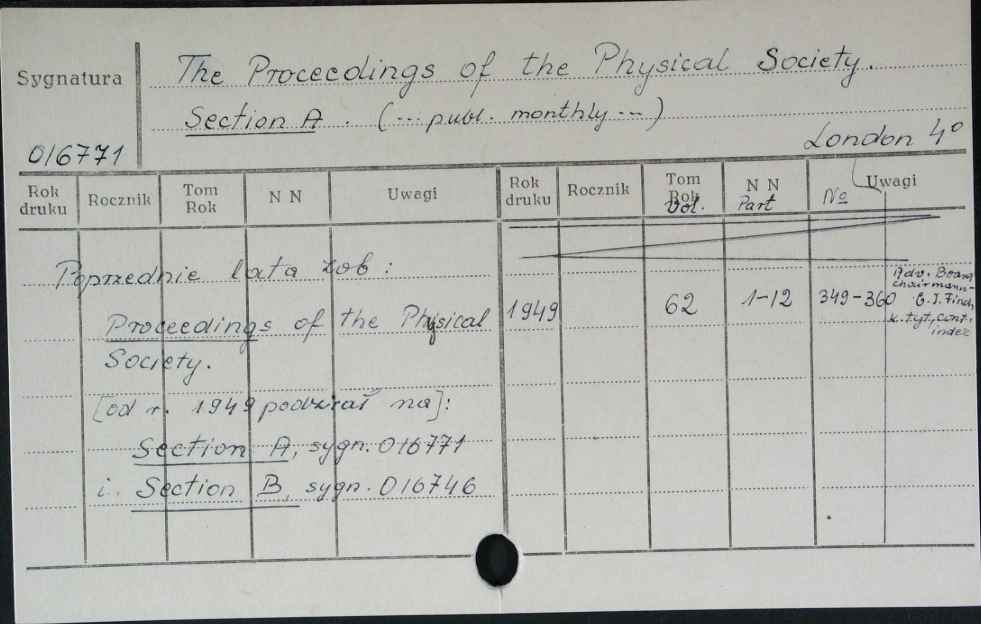 Sygnatura
The Proceedings of the Physical Society.
Section A. (... publ. monthly ...)
016771
London 4°
Rok druku Rocznik Tom Rok N N Uwagi Rok druku Rocznik Tom Rok Vol. N N Part № Uwagi
Poprzednie lata zob:
Proceedings of the Physical
Society.
[od r. 1949 podział na]:
Section A, sygn. 016771
i. Section B, sygn. 016746
1949 62 1-12 349-360
Adv. Board
chairmann-
G.I. Finch
k.tyt, cont.,
index